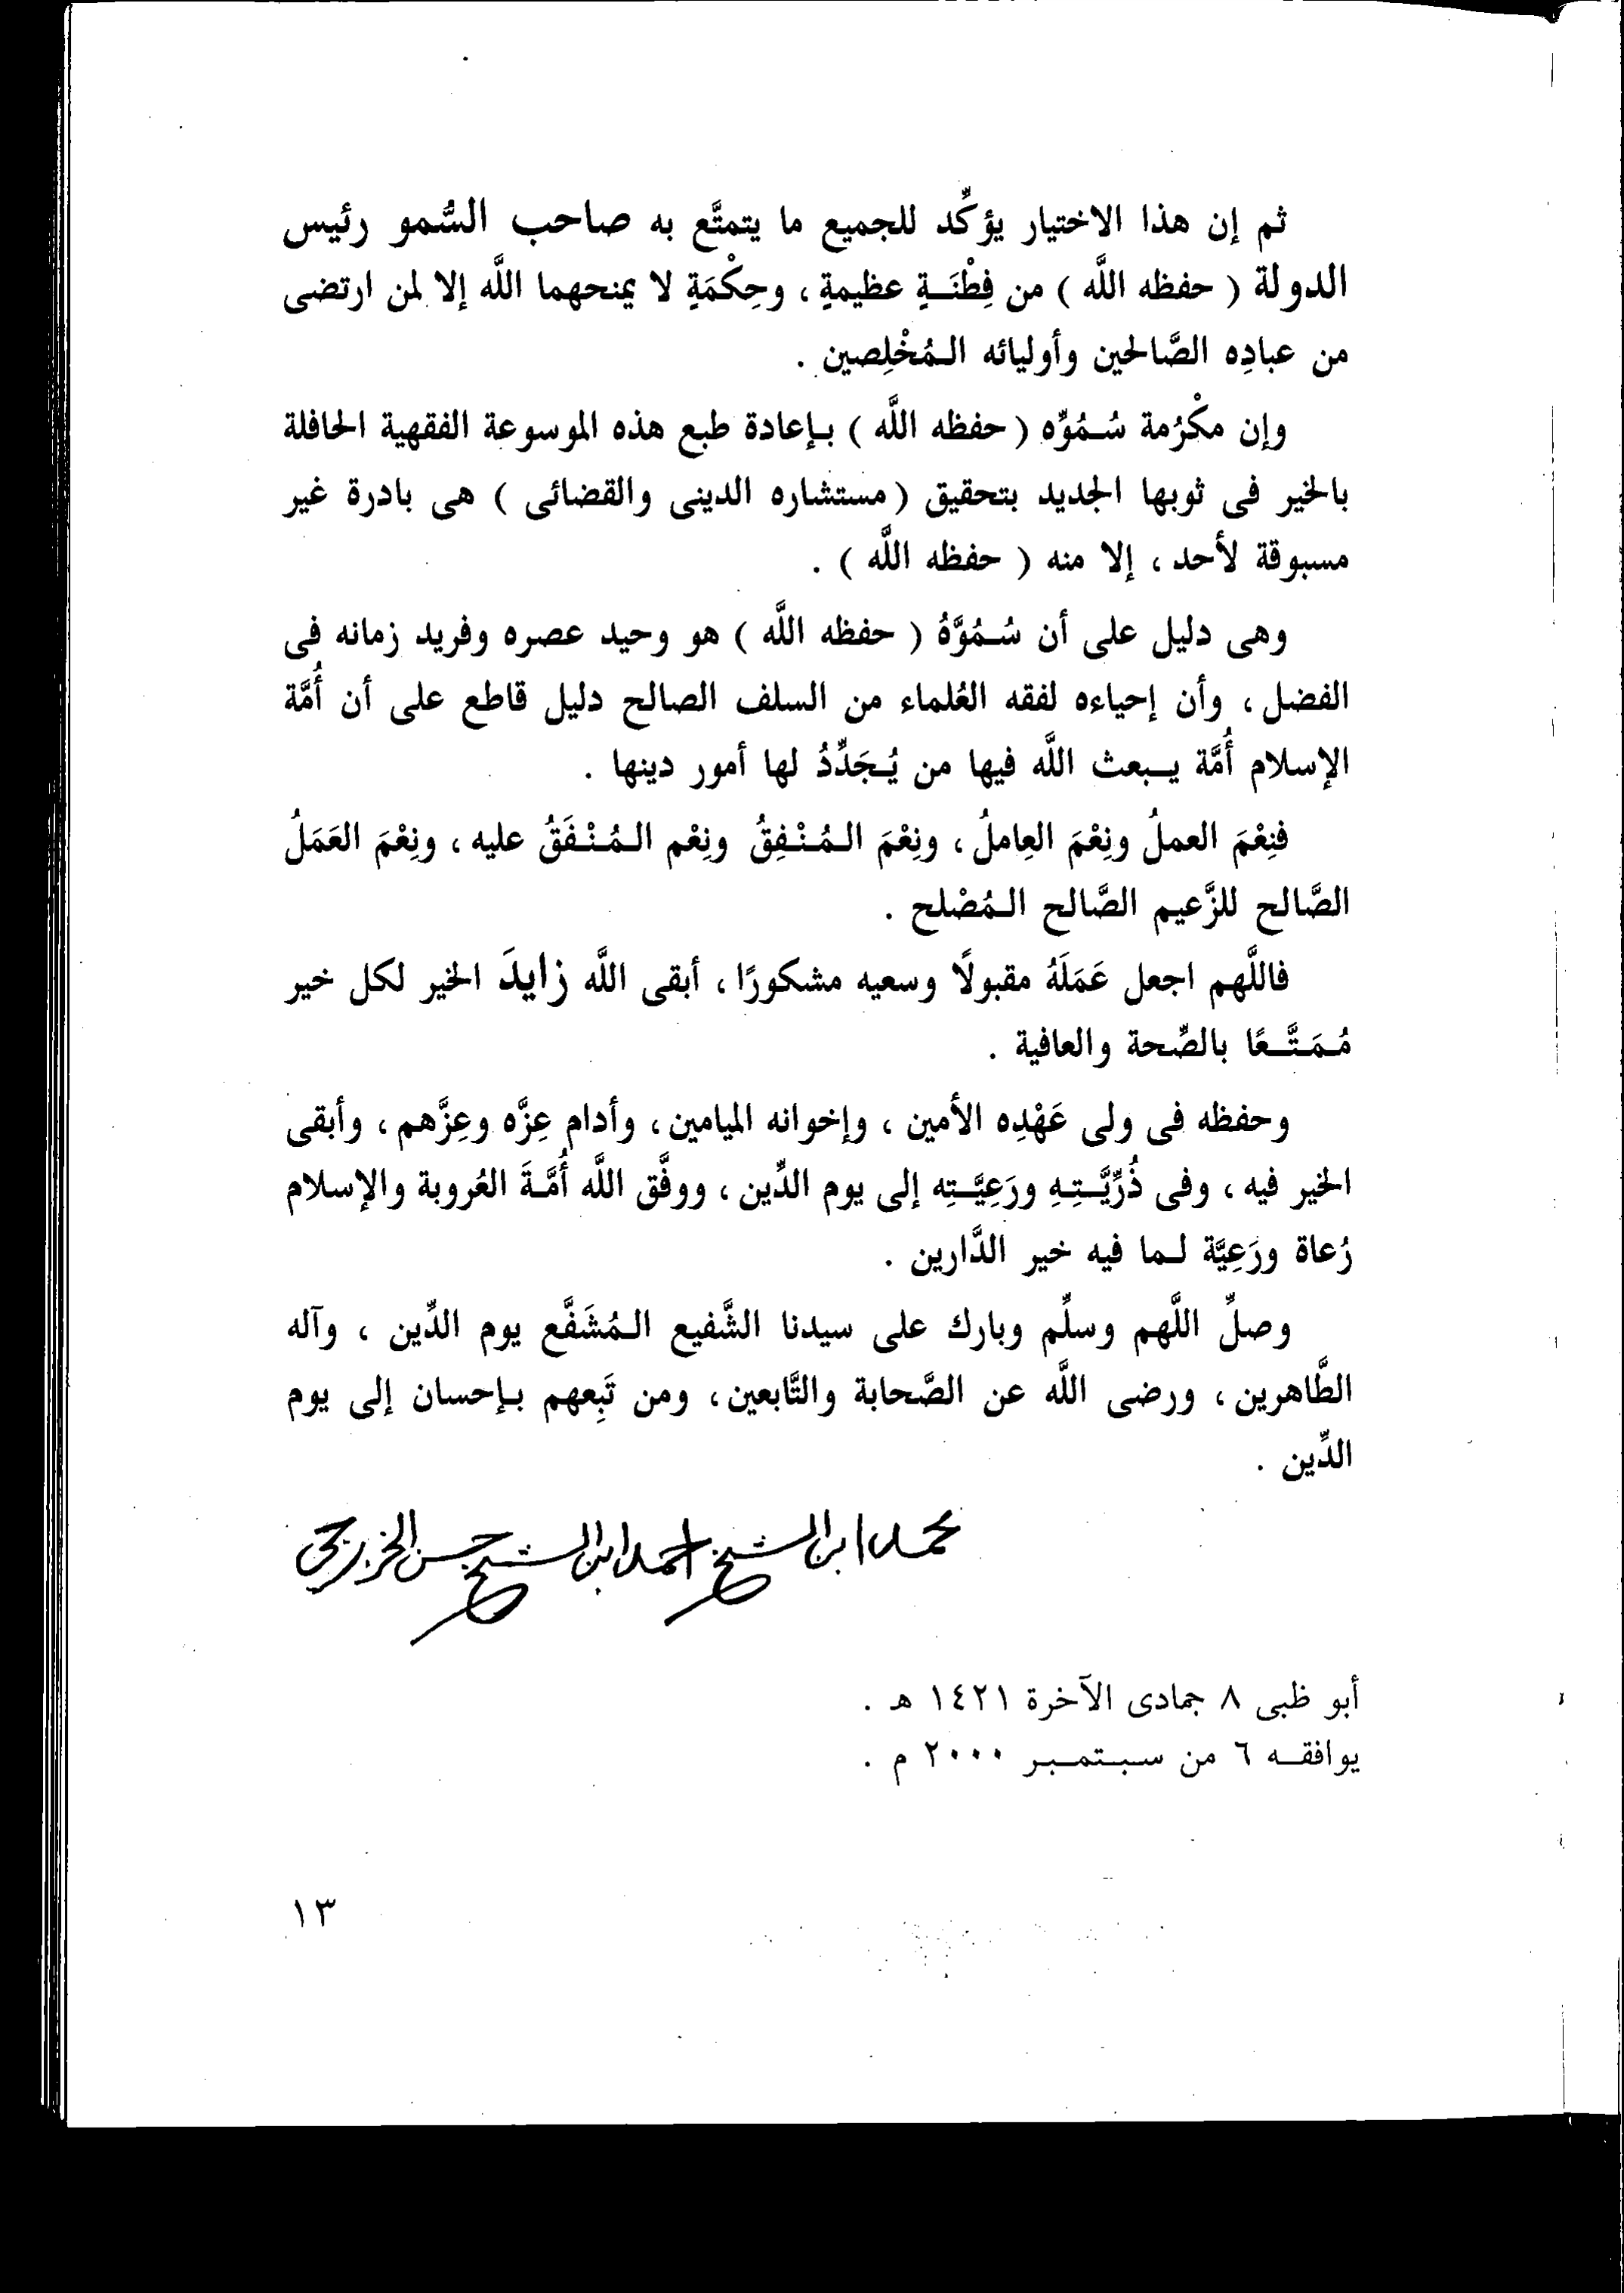 ثم إن هذا الاختيار يؤكِّد للجميع ما يتمتَّع به صاحب السُّمو رئيس
الدولة ( حفظه اللَّه ) من فِطْنَـةٍ عظيمةٍ ، وحِكْمَةٍ لا يمنحهما اللَّه إلا لمن ارتضى
من عبادِه الصَّالحين وأوليائه المُخْلِصين .
وإن مكْرُمة سُـمُوِّه ( حفظه اللَّه ) بإعادة طبع هذه الموسوعة الفقهية الحافلة
بالخير فى ثوبها الجديد بتحقيق ( مستشاره الدينى والقضائى ) هى بادرة غير
مسبوقة لأحد ، إلا منه ( حفظه اللَّه ) .
وهى دليل على أن سُـمُوَّهُ ( حفظه اللَّه ) هو وحيد عصره وفريد زمانه فى
الفضل ، وأن إحياءه لفقه العُلماء من السلف الصالح دليل قاطع على أن أُمَّة
الإسلام أُمَّة يـبعث اللَّه فيها من يُـجَدِّدُ لها أمور دينها .
فنِعْمَ العملُ ونِعْمَ العِاملُ ، ونِعْمَ المُنْفِقُ ونِعْم المُنْفَقُ عليه ، ونِعْمَ العَمَلُ
الصَّالح للزَّعيم الصَّالح المُصْلح .
فاللَّهم اجعل عَمَلَهُ مقبولًا وسعيه مشكورًا ، أبقى اللَّه زايدَ الخير لكل خير
مُـمَـتَّـعًا بالصِّحة والعافية .
وحفظه فى ولى عَهْدِه الأمين ، وإخوانه الميامين ، وأدام عِزَّه وعِزَّهم ، وأبقى
الخير فيه ، وفى ذُرِّيَّـتِـهِ ورَعِيَّـتِه إلى يوم الدِّين ، ووفَّق اللَّه أُمَّـةَ العُروبة والإسلام
رُعاة ورَعِيَّة لـما فيه خير الدَّارين .
وصلِّ اللَّهم وسلِّم وبارك على سيدنا الشَّفيع المُشَفَّع يوم الدِّين ، وآله
الطَّاهرين ، ورضى اللَّه عن الصَّحابة والتَّابعين ، ومن تَبِعهم بإحسان إلى يوم
الدِّين .
محمد ابن الشيخ احمد ابن الشيخ حسن الخزرجى
أبو ظبى ٨ جمادى الآخرة ١٤٢١ هـ .
يوافقـه ٦ من سـبـتمـبـر ٢٠٠٠ م .
١٣